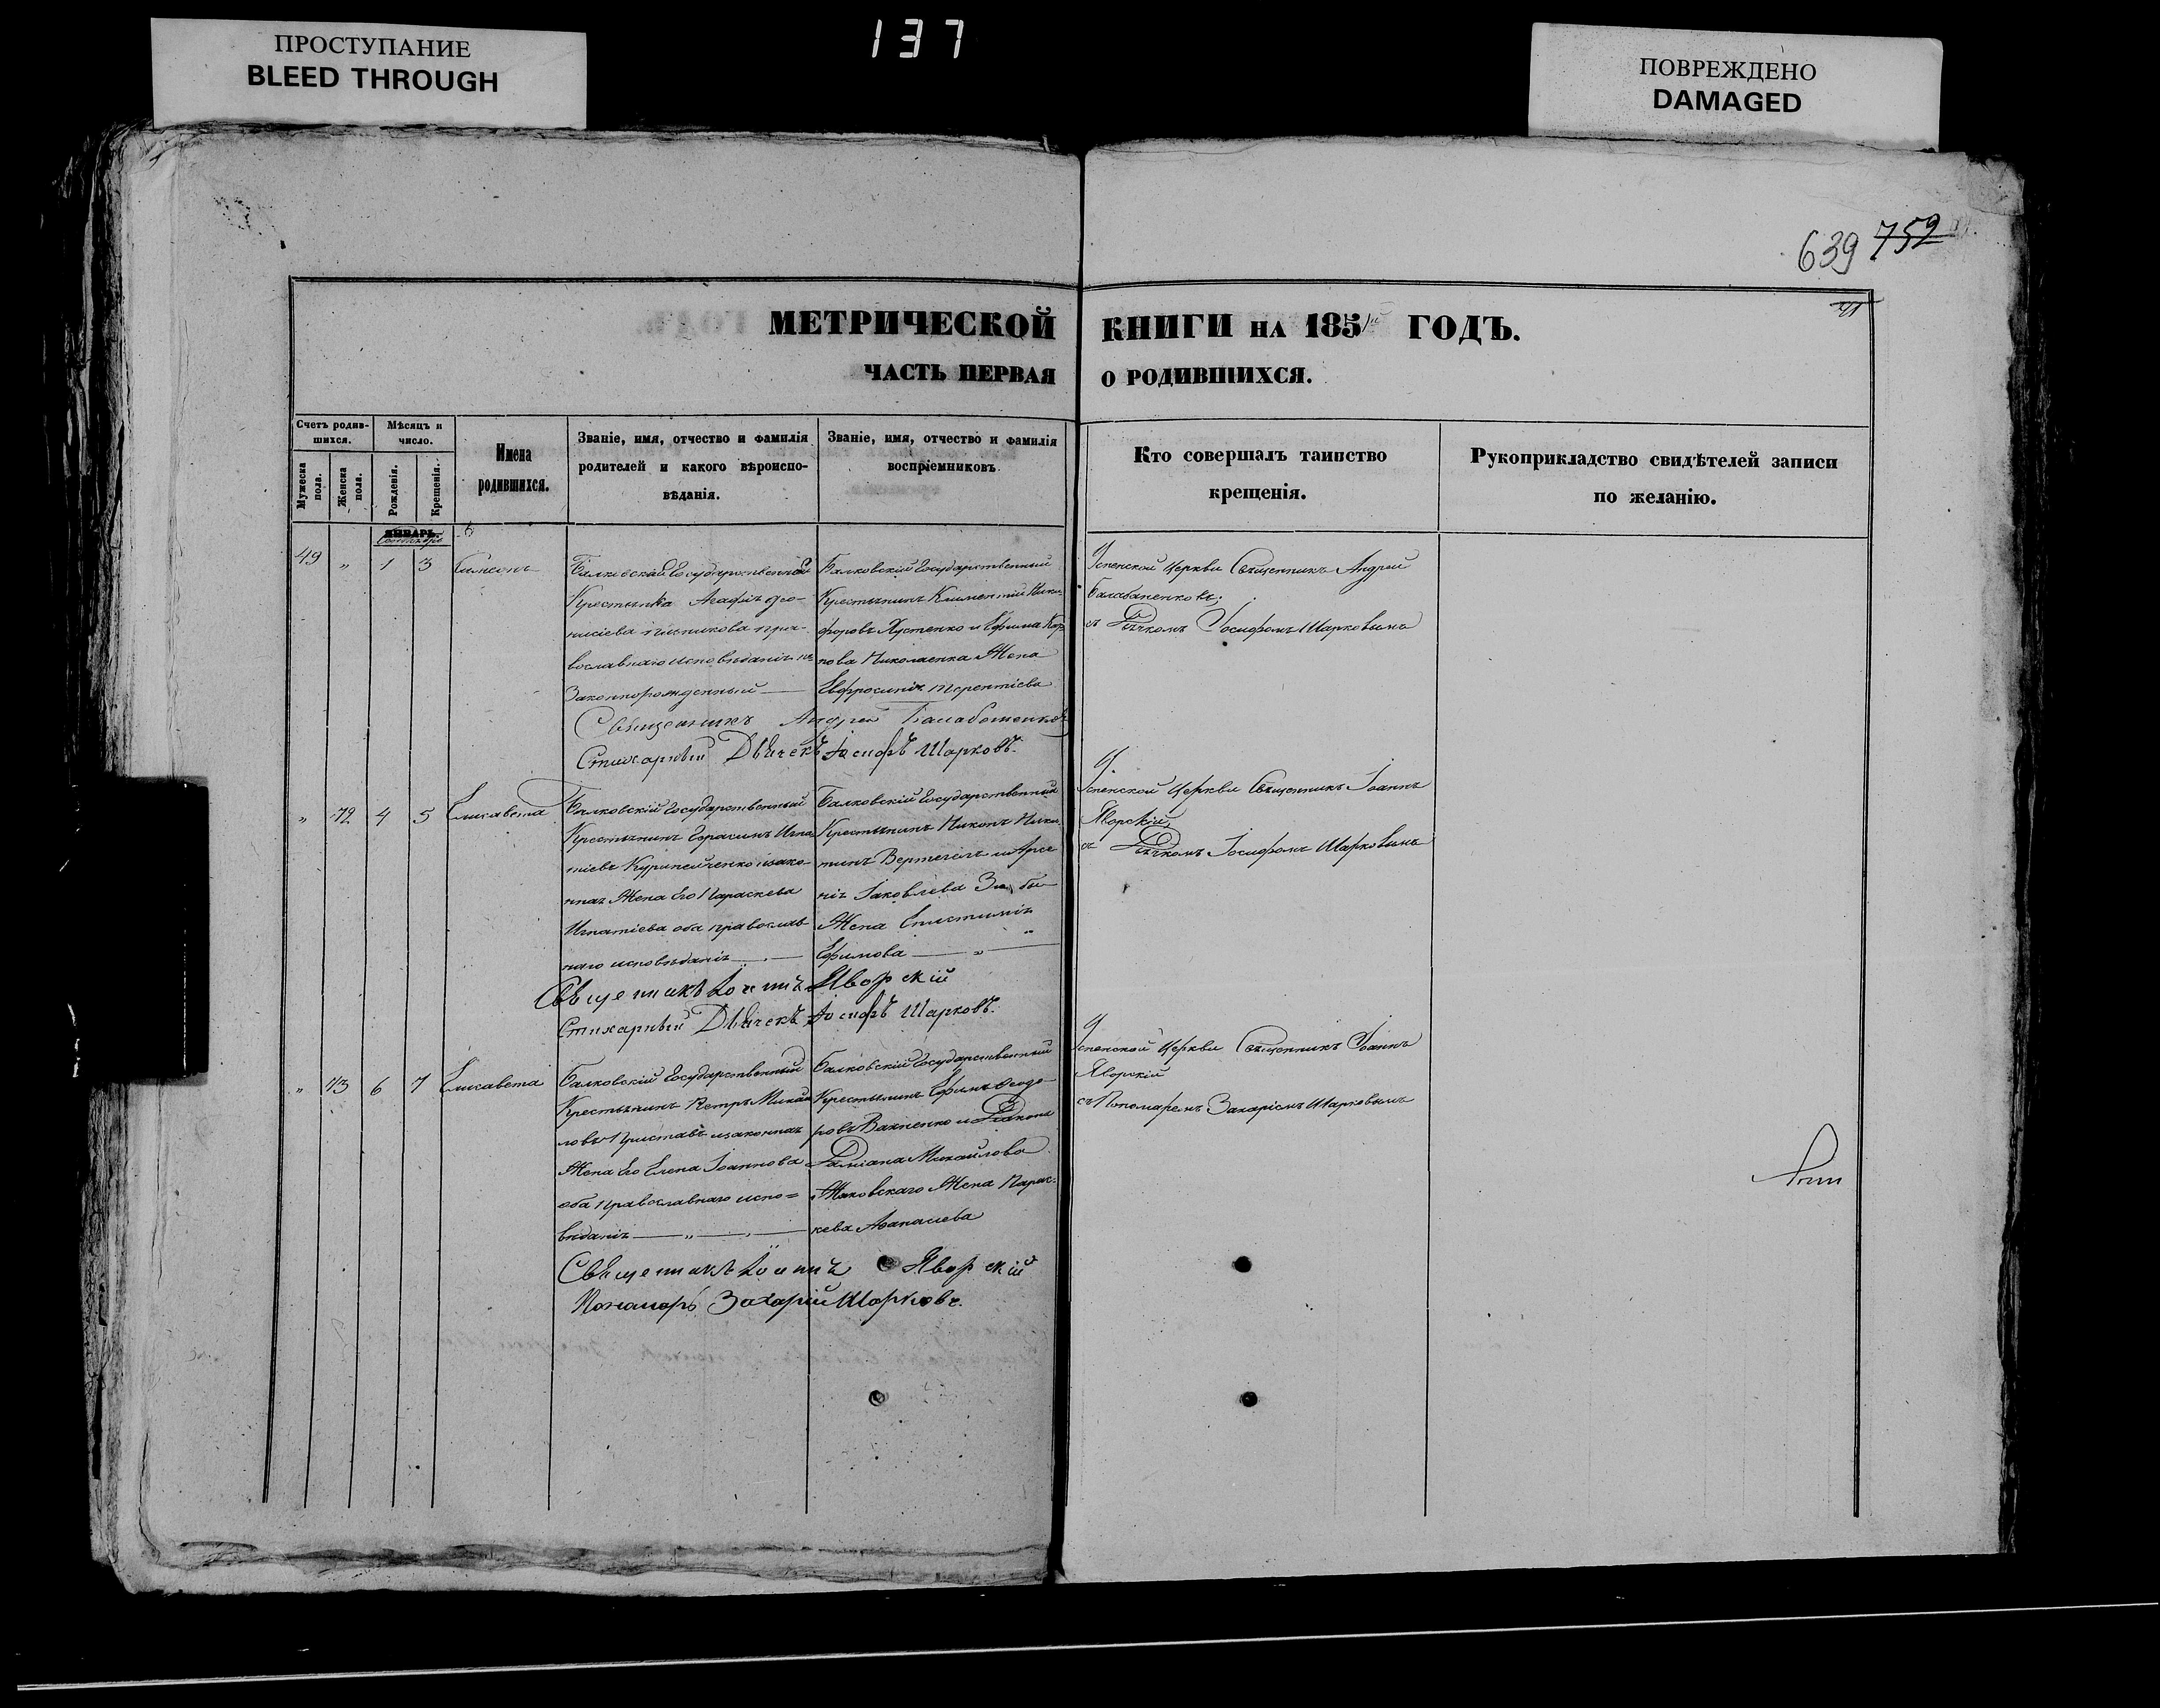 ПРОСТУПАНИЕ
BLEED THROUGH
137
ПОВРЕЖДЕНО
DAMAGED
639 752
МЕТРИЧЕСКОЙ КНИГИ НА 1851й ГОДЪ.
ЧАСТЬ ПЕРВАЯ О РОДИВШИХСЯ.
Счетъ родив-
шихся.
Мужеска пола.
Женска пола.
Мѣсяцъ и
число.
Рожденія.
Крещенія.
Имена
родившихся.
Званіе, имя, отчество и фамилія
родителей и какого вѣроиспо-
вѣданія.
Званіе, имя, отчество и фамилія
воспріемниковъ.
Кто совершалъ таинство
крещенія.
Рукоприкладство свидѣтелей записи
по желанію.
ЯНВАРЬ.
49 " 1 3 Симеонъ
Государственной
Крестьянка Агафія
вославнаго исповѣданія
Законнорожденный
Балковскій Государственный
Крестьянинъ Климентій Ники-
форовъ Хустенко и Ефима
пова Николаенка Жена
Евфросинія Терентіева
Успенской Церкви Священникъ Андрей
съ Дьячкомъ Іосифомъ Шарковымъ
Священникъ Андрей
Стихарный Дьячекъ Іосифъ Шарковъ.
" 72 4 5 Елисавета
Балковскій Государственный
Крестьянинъ Герасимъ Игна
тіевъ и зако-
нная Жена Его Параскева
Игнатіева оба православ
наго исповѣданія
Балковскій Государственный
Крестьянинъ Никонъ Ники-
тинъ и Арсе
нія Іаковлева
Жена Епистимія
Ефимова
Успенской Церкви Священникъ Іоаннъ
Яворскій
съ Дьячкомъ Іосифомъ Шарковымъ
Священникъ Іоаннъ Яворскій
Стихарный Дьячекъ Іосифъ Шарковъ.
" 73 6 7 Елисавета
Балковскій Государственный
Крестьянинъ Петръ Михай
ловъ Приставъ и законная
Жена Его Елена Іоаннова
оба Православнаго испо=
вѣданія
Балковскій Государственный
Крестьянинъ Ефимъ Ѳеодо-
ровъ Вакненко и Діакона
Даміана Михайлова
Маковскаго Жена Парас-
кева Аѳанасіева
Успенской Церкви Священникъ Іоаннъ
Яворскій
съ Пономаремъ Захаріемъ Шарковымъ
Священникъ Іоаннъ Яворскій
Пономарь Захарій Шарковъ.